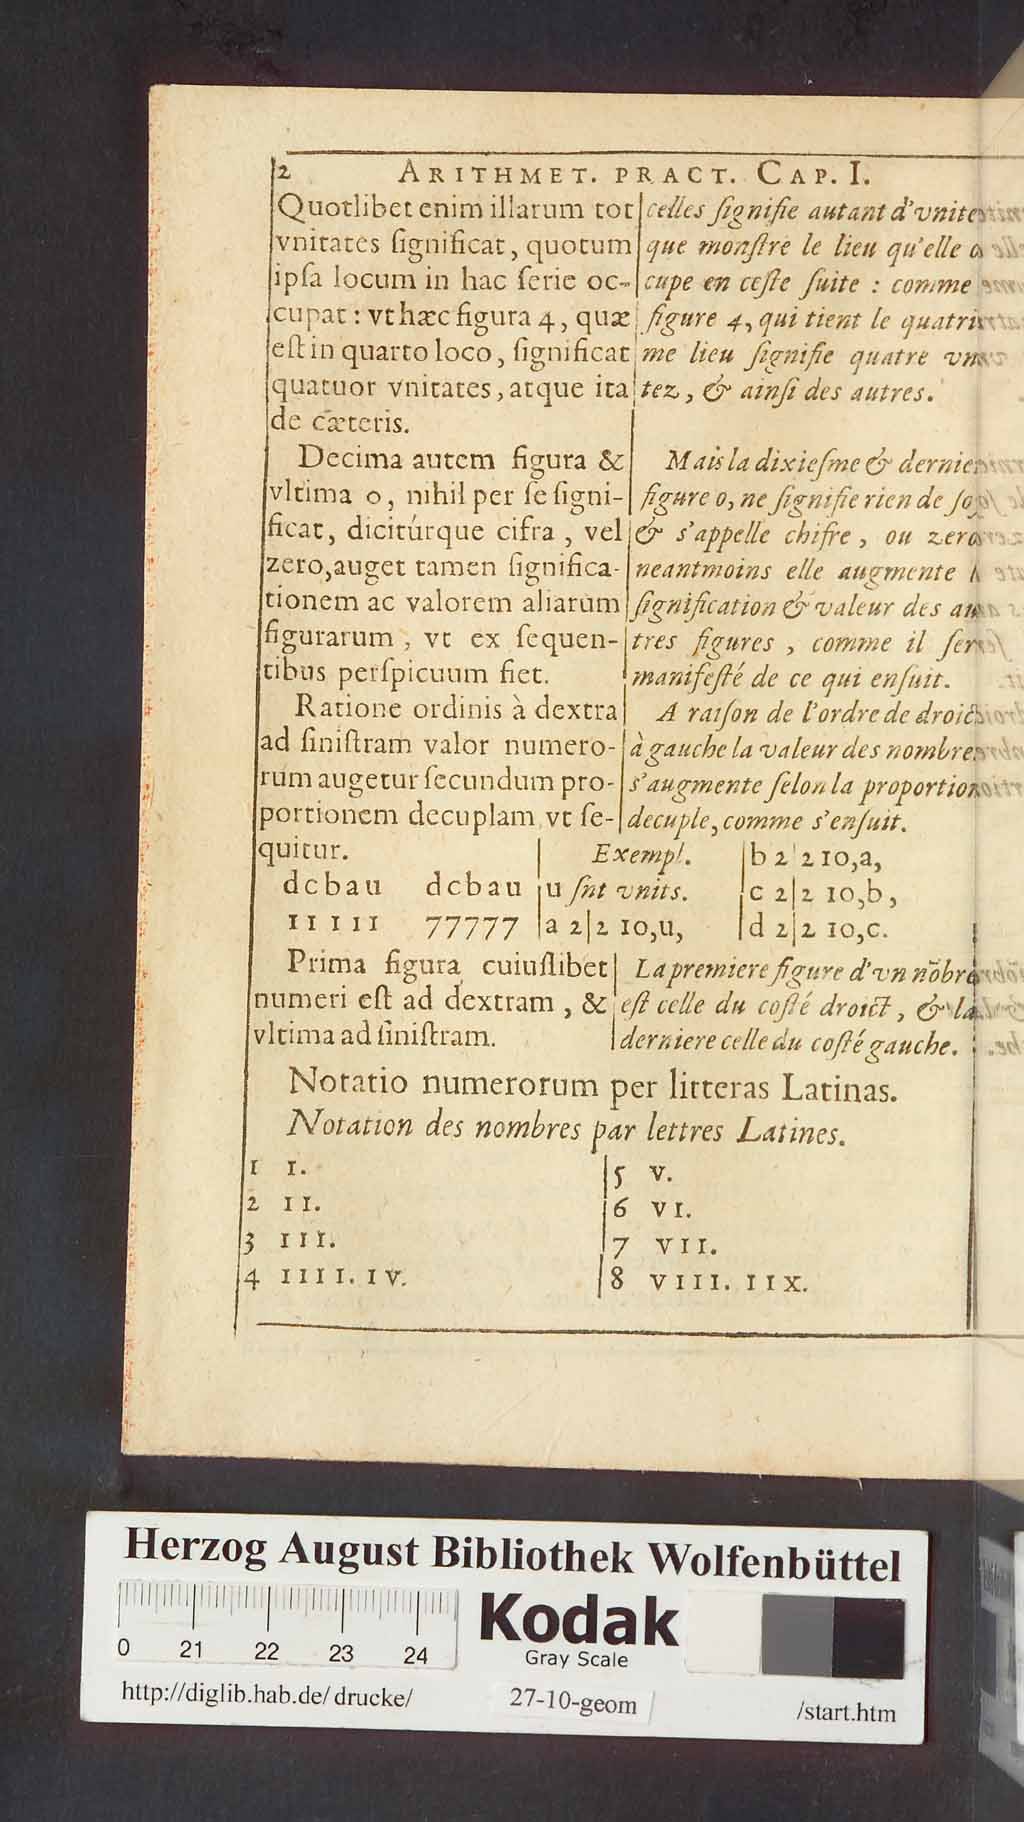 2 ARITHMET. PRACT. CAP. I.
Quotlibet enim illarum tot
vnitates ſignificat, quotum
ipſa locum in hac ſerie oc-
cupat : vt hæc figura 4, quæ
eſt in quarto loco, ſignificat
quatuor vnitates, atque ita
de cæteris.
Decima autem figura &
vltima 0, nihil per ſe ſigni-
ficat, dicitúrque cifra, vel
zero, auget tamen ſignifica-
tionem ac valorem aliarum
figurarum, vt ex ſequen-
tibus perſpicuum fiet.
Ratione ordinis à dextra
ad ſiniſtram valor numero-
rum augetur ſecundum pro-
portionem decuplam, vt ſe-
quitur.
celles ſignifie autant d'vnite
que monſtre le lieu qu'elle o
cupe en ceſte ſuite : comme
figure 4, qui tient le quatri
me lieu ſignifie quatre vn
tez, & ainſi des autres.
Mais la dixieſme & dernie
figure 0, ne ſignifie rien de ſoy
& s'appelle chifre, ou zero
neantmoins elle augmente
ſignification & valeur des au
tres figures, comme il ſer
manifeſté de ce qui enſuit.
A raiſon de l'ordre de droict
à gauche la valeur des nombre
s'augmente ſelon la proportion
decuple, comme s'enſuit.
dcbau dcbau
11111 77777
Exempl.
u ſnt vnits.
a 2|2 10,u,
b 2|2 10,a,
c 2|2 10,b,
d 2|2 10,c.
Prima figura cuiuſlibet
numeri eſt ad dextram, &
vltima ad ſiniſtram.
La premiere figure d'vn nõbre
eſt celle du coſté droict, & la
derniere celle du coſté gauche.
Notatio numerorum per litteras Latinas.
Notation des nombres par lettres Latines.
1 I.
2 II.
3 III.
4 IIII. IV.
5 V.
6 VI.
7 VII.
8 VIII. IIX.
Herzog August Bibliothek Wolfenbüttel
0 21 22 23 24
Kodak
Gray Scale
http://diglib.hab.de/drucke/ 27-10-geom /start.htm